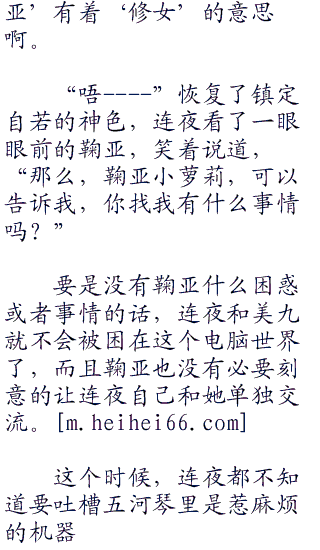 亚’有着‘修女’的意思
啊。
“唔----”恢复了镇定
自若的神色，连夜看了一眼
眼前的鞠亚，笑着说道，
“那么，鞠亚小萝莉，可以
告诉我，你找我有什么事情
吗？”
要是没有鞠亚什么困惑
或者事情的话，连夜和美九
就不会被困在这个电脑世界
了，而且鞠亚也没有必要刻
意的让连夜自己和她单独交
流。[m.heihei66.com]
这个时候，连夜都不知
道要吐槽五河琴里是惹麻烦
的机器